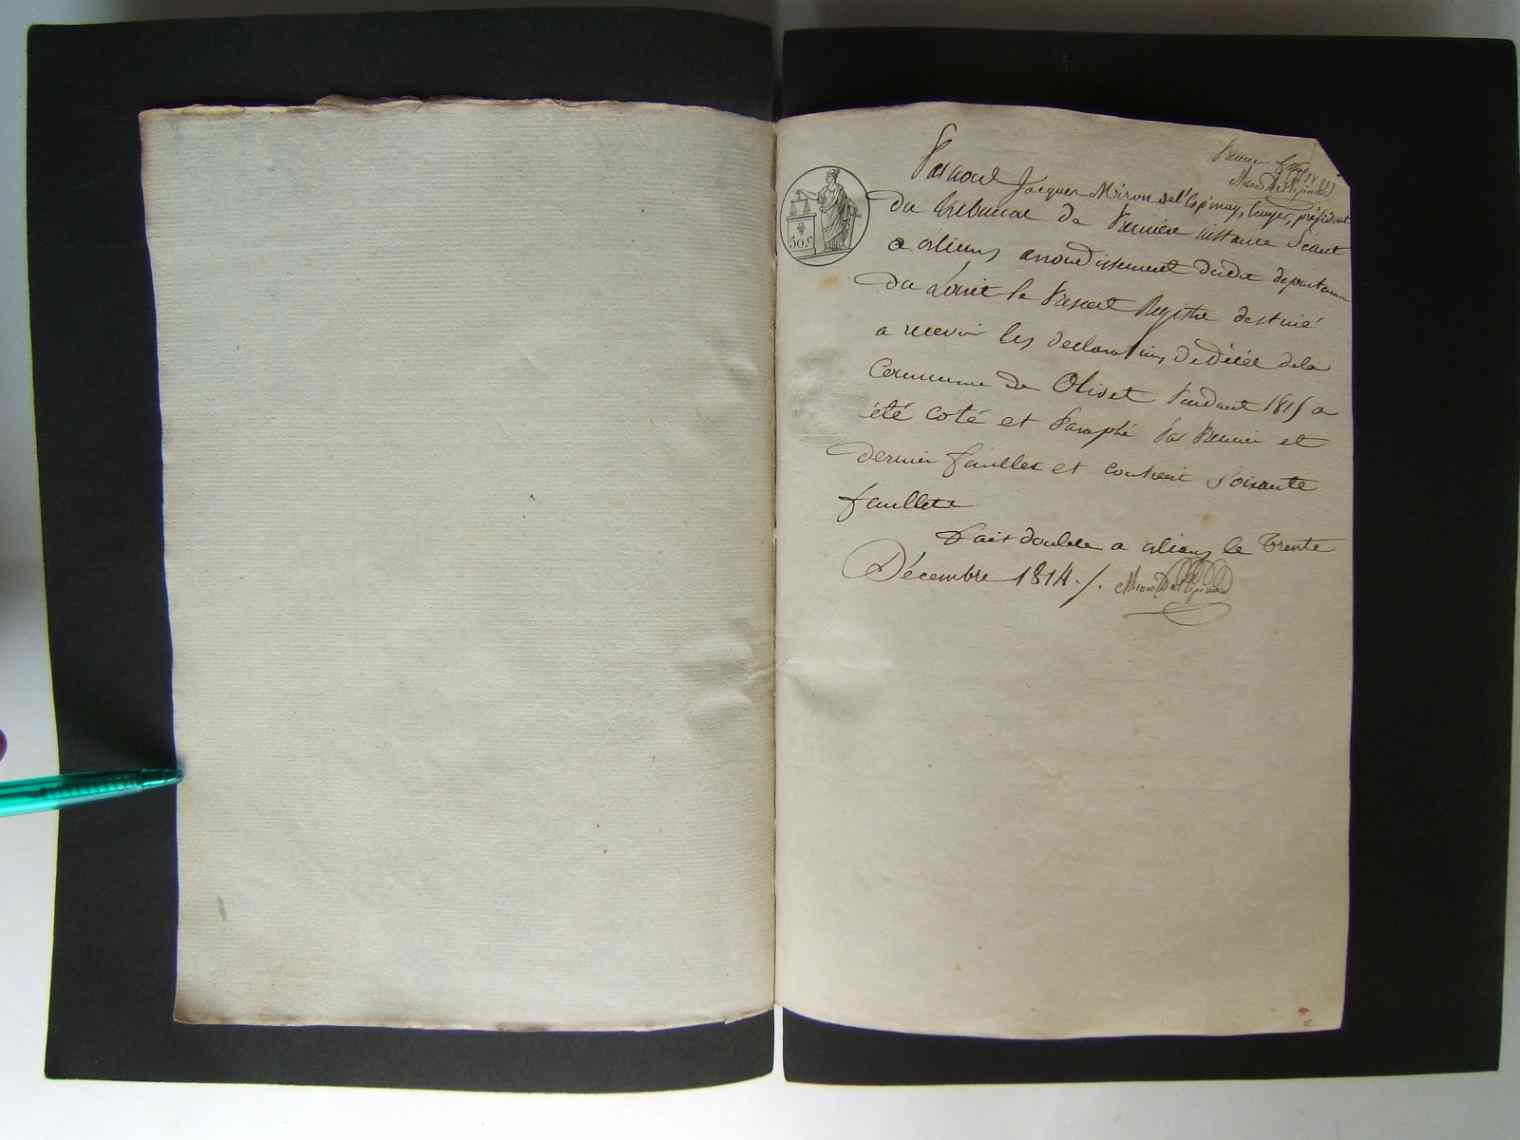 Premier f.
Miron De l'Espinay
Par nous Jacques Miron de l'Espinay, Ecuyer, président
du tribunal de Premiere instance Séant
a orleans arrondissement dudit departement
du Loiret le Present Registre destiné
a recevoir les declarations de Décès de la
Commune de Olivet Pendant 1815 a
été coté et Paraphé Par Premier et
dernier feuillet et contient Soixante
feuillets
30.c
Fait double a orleans le trente
Décembre 1814./. Miron De l'Espinay